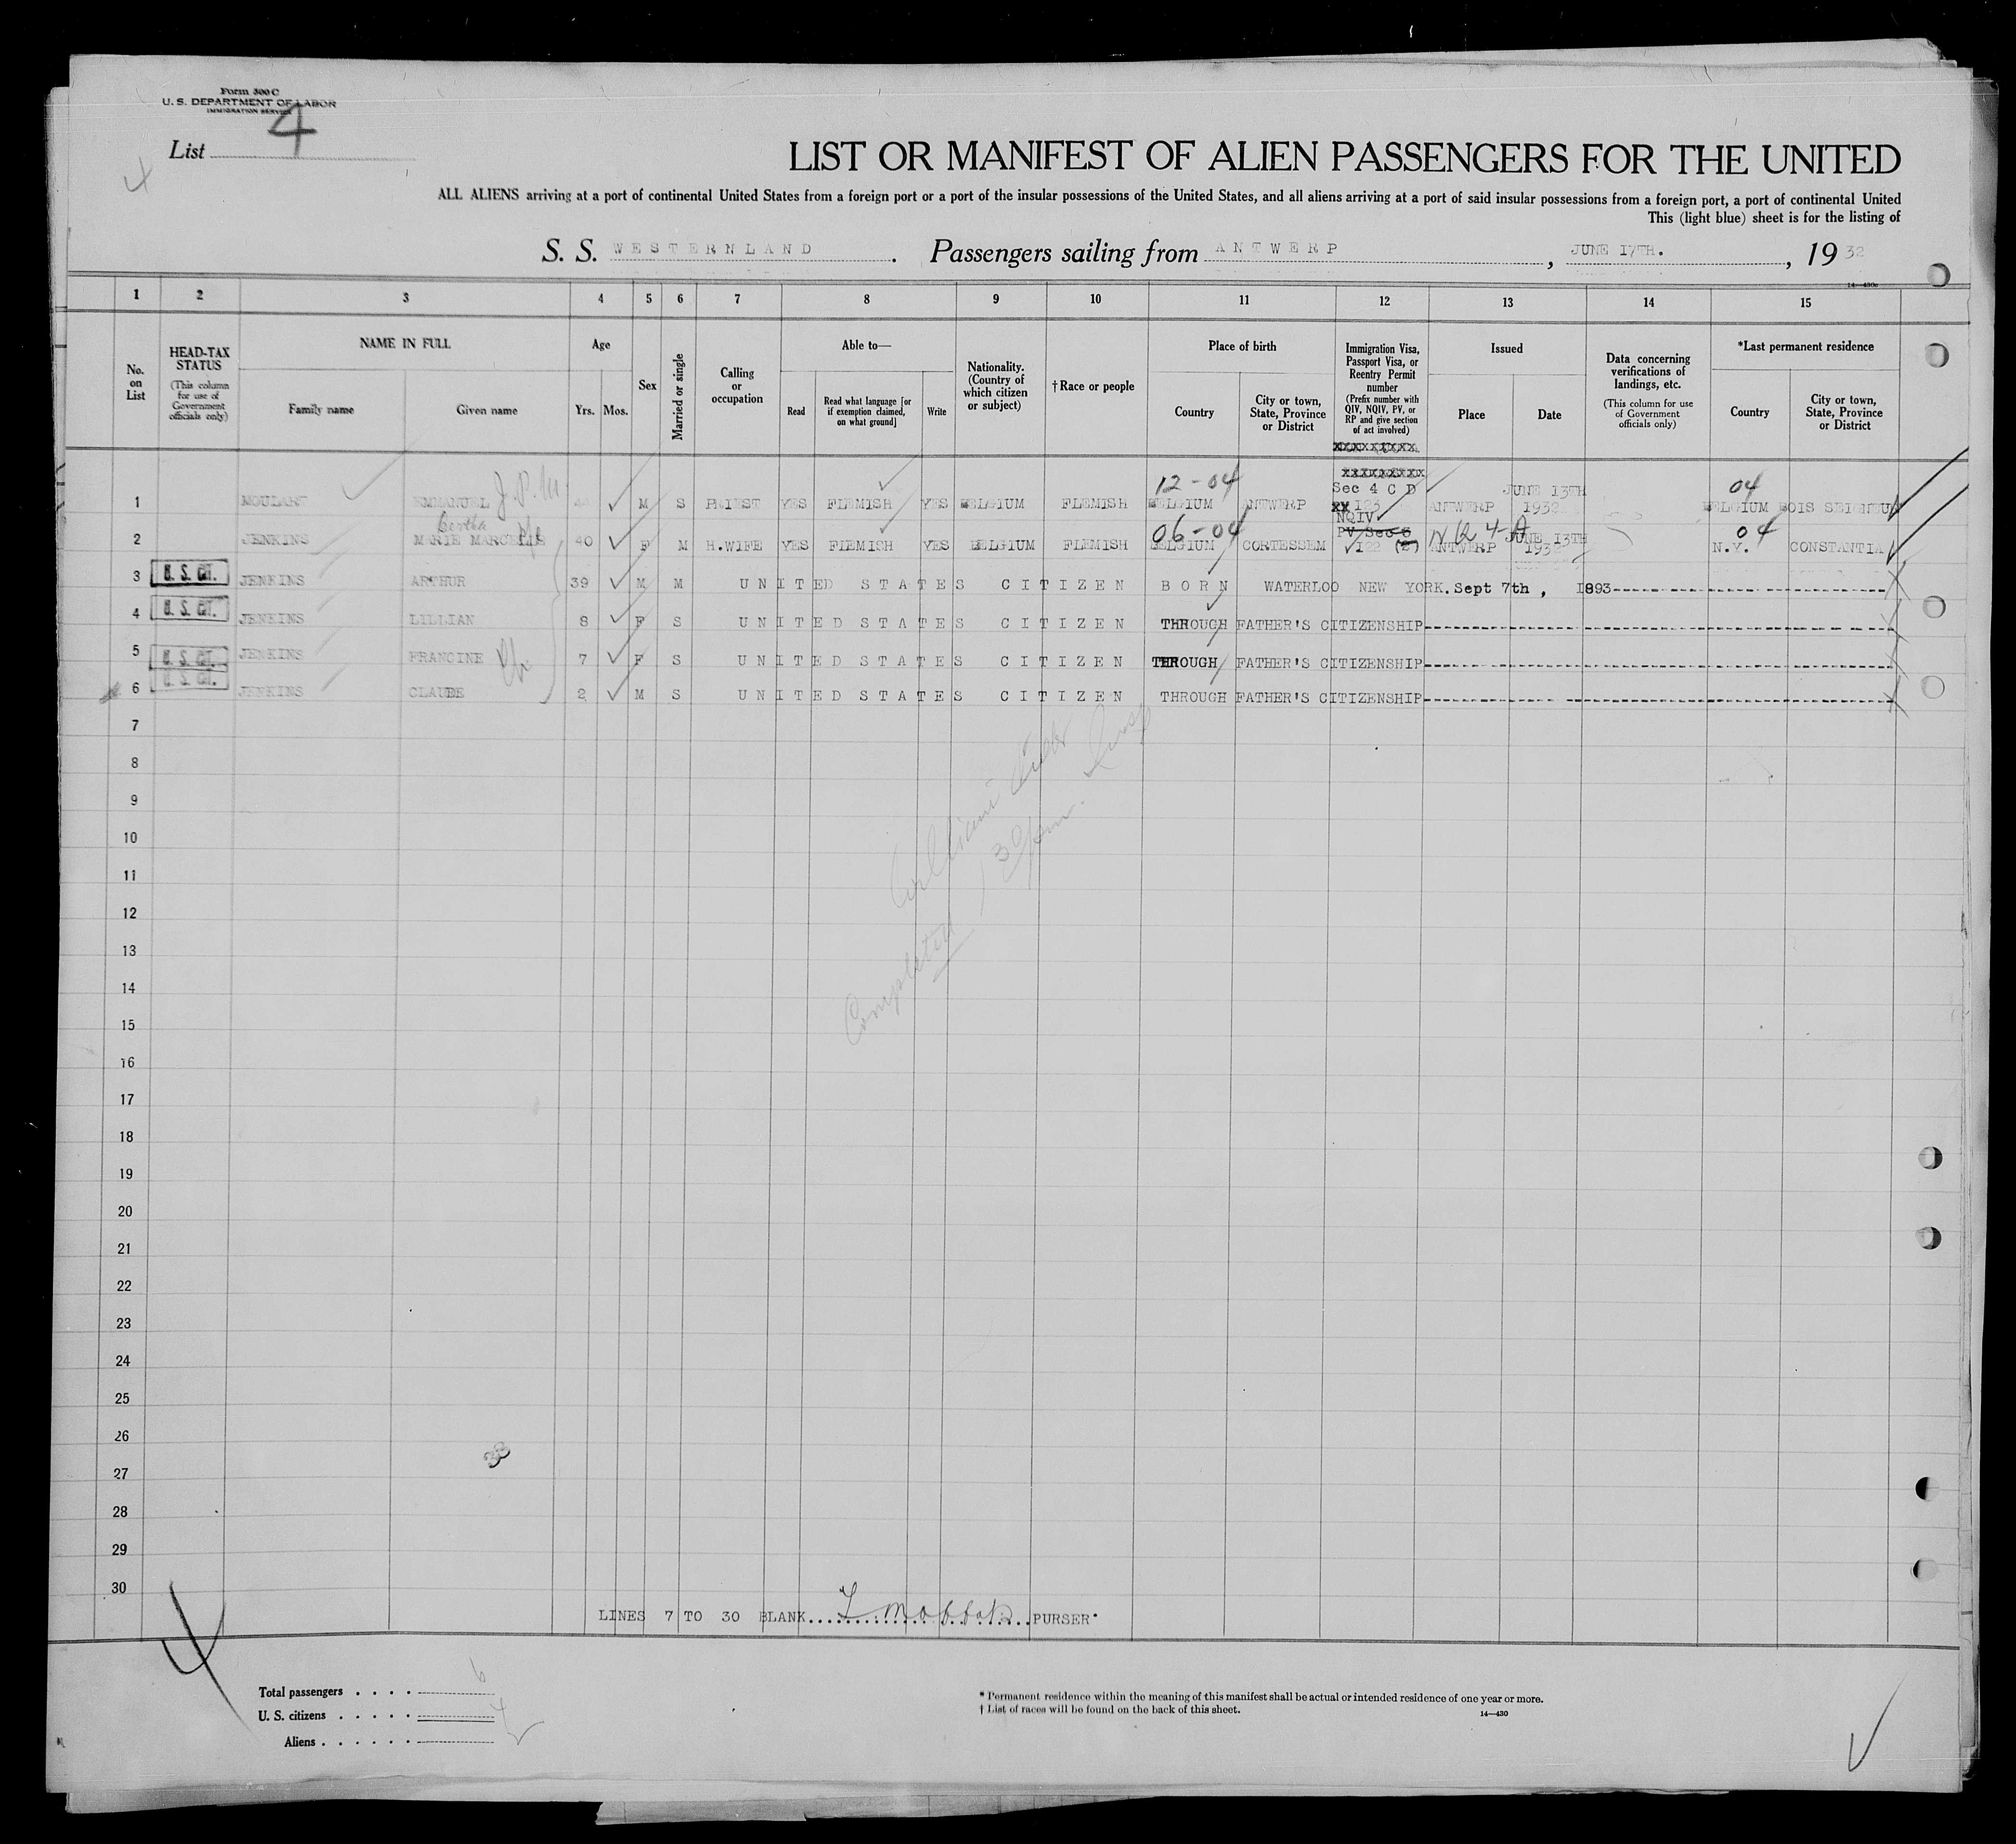 Form 500 C
U. S. DEPARTMENT OF LABOR
IMMIGRATION SERVICE
List 4
4
LIST OR MANIFEST OF ALIEN PASSENGERS FOR THE UNITED
ALL ALIENS arriving at a port of continental United States from a foreign port or a port of the insular possessions of the United States, and all aliens arriving at a port of said insular possessions from a foreign port, a port of continental United
This (light blue) sheet is for the listing of
S. S. WESTERNLAND. Passengers sailing from ANTWERP, JUNE 17TH., 1932
14—430b
1 2 3 4 5 6 7 8 9 10 11 12 13 14 15
No. on List
HEAD-TAX STATUS (This column for use of Government officials only)
NAME IN FULL
Family name Given name
Age
Yrs. Mos.
Sex
Married or single
Calling or occupation
Able to—
Read
Read what language [or if exemption claimed, on what ground]
Write
Nationality. (Country of which citizen or subject)
† Race or people
Place of birth
Country
City or town, State, Province or District
Immigration Visa, Passport Visa, or Reentry Permit number (Prefix number with QIV, NQIV, PV, or RP and give section of act involved)
Issued
Place Date
Data concerning verifications of landings, etc. (This column for use of Government officials only)
*Last permanent residence
Country
City or town, State, Province or District
12-04 04
1 MOULART EMMANUEL J.P.M. M S PRIEST YES FLEMISH YES BELGIUM FLEMISH BELGIUM ANTWERP Sec 4 C D 123 ANTWERP JUNE 13TH 1932 BELGIUM BOIS SEIGNEUR
Bertha 06-04 NQIV 04
2 JENKINS MARIE MARCELLE 40 F M H.WIFE YES FLEMISH YES BELGIUM FLEMISH BELGIUM CORTESSEM PV Sec 3 122 (2) ANTWERP JUNE 13TH 1932 N.Y. CONSTANTIA
3 U. S. CIT. JENKINS ARTHUR 39 M M UNITED STATES CITIZEN BORN WATERLOO NEW YORK. Sept 7th, 1893
4 U. S. CIT. JENKINS LILLIAN 8 F S UNITED STATES CITIZEN THROUGH FATHER'S CITIZENSHIP
5 U. S. CIT. JENKINS FRANCINE 7 F S UNITED STATES CITIZEN THROUGH FATHER'S CITIZENSHIP
6 U. S. CIT. JENKINS CLAUDE 2 M S UNITED STATES CITIZEN THROUGH FATHER'S CITIZENSHIP
7
8
9
10
11
12
13
14
Completed
15
16
17
18
19
20
21
22
23
24
25
26
27
28
29
30
LINES 7 TO 30 BLANK PURSER
Total passengers 6
U. S. citizens 4
Aliens
* Permanent residence within the meaning of this manifest shall be actual or intended residence of one year or more.
† List of races will be found on the back of this sheet.
14—430